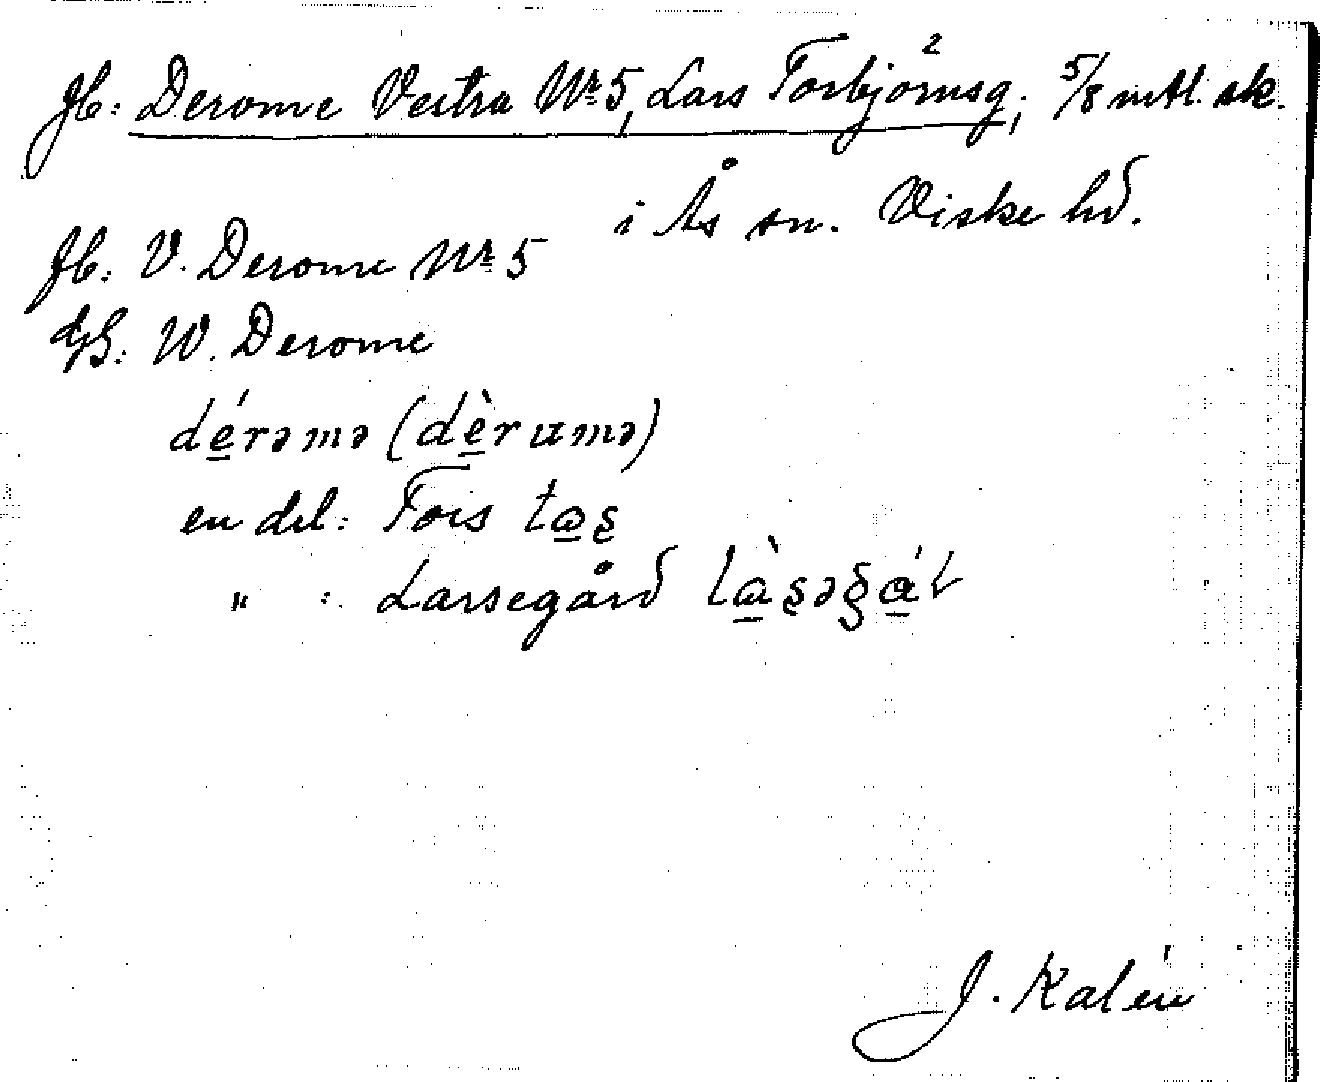 Jb: Derome Vestra Nr 5, Lars Torbjörnsg², 5/8 mtl. sk.
i Ås sn. Viske hd.
Jb: V. Derome Nr 5
GS: W. Derome
dérəmə (dèrumə)
en del: Tors
" : Larsegård
J. Kalén